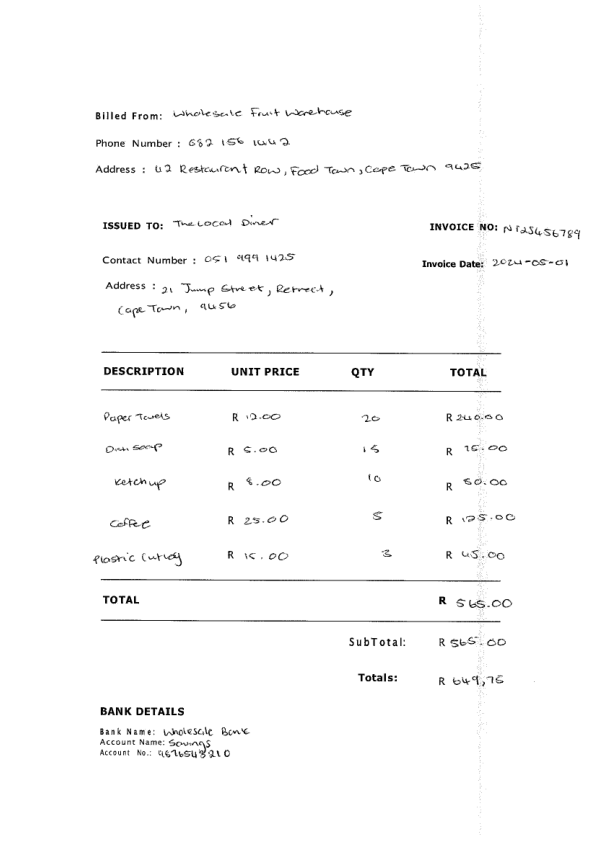 Billed From: Wholesale Fruit Warehouse
Phone Number : 082 156 1442
Address : 42 Restaurant Row, Food Town, Cape Town 9425
ISSUED TO: The Local Diner
INVOICE NO:
Contact Number : 051 999 1425
Invoice Date: 2024-05-01
Address : 21 Jump Street, Retreat,
Cape Town, 9456
DESCRIPTION UNIT PRICE QTY TOTAL
Paper Towels R 12.00 20 R 240.00
Dish Soap R 5.00 15 R 75.00
Ketchup R 8.00 10 R 80.00
Coffee R 25.00 5 R 125.00
Plastic Cutlery R 15.00 3 R 45.00
TOTAL R 565.00
SubTotal: R 565.00
Totals: R 649,75
BANK DETAILS
Bank Name: Wholesale Bank
Account Name: Savings
Account No.: